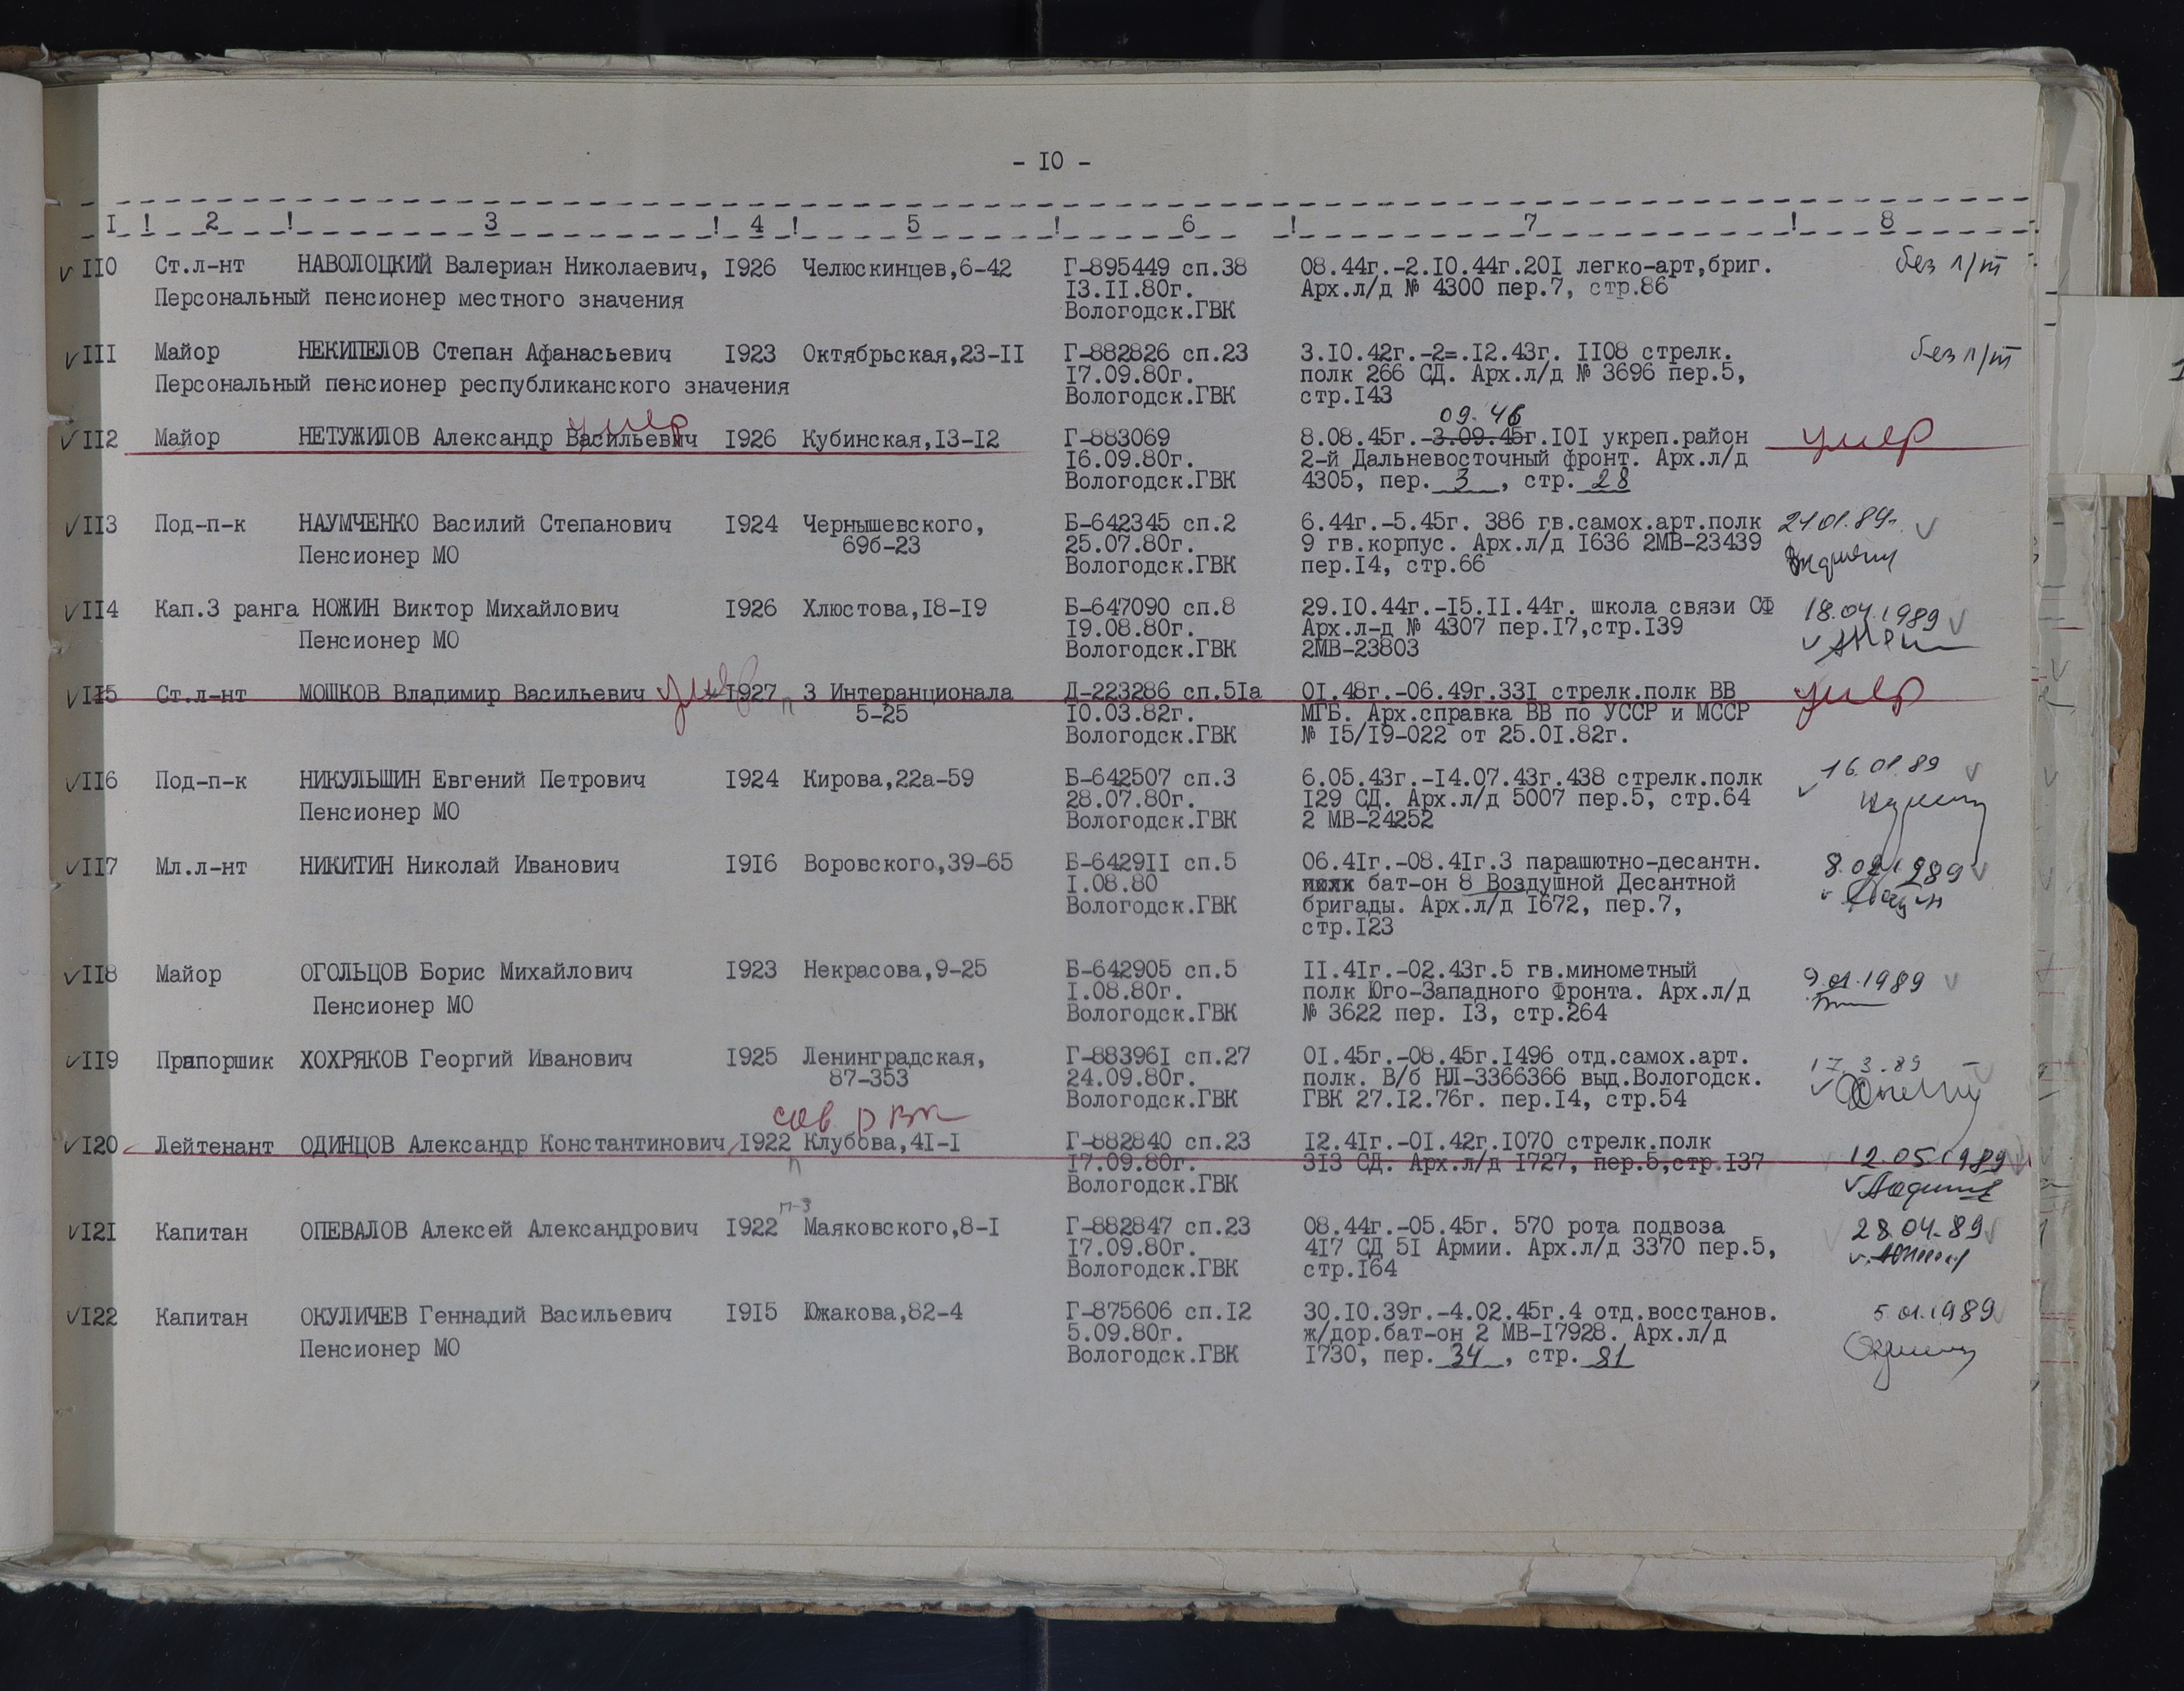 - I0 -
I ! 2 ! 3 ! 4 ! 5 ! 6 ! 7 ! 8
II0 Ст.л-нт НАВОЛОЦКИЙ Валериан Николаевич, I926 Челюскинцев,6-42 Г-895449 сп.38 08.44г.-2.I0.44г.20I легко-арт,бриг. без л/т
Персональный пенсионер местного значения I3.II.80г. Арх.л/д № 4300 пер.7, стр.86
Вологодск.ГВК
III Майор НЕКИПЕЛОВ Степан Афанасьевич I923 Октябрьская,23-II Г-882826 сп.23 3.I0.42г.-2=.I2.43г. II08 стрелк. без л/т
Персональный пенсионер республиканского значения I7.09.80г. полк 266 СД. Арх.л/д № 3696 пер.5,
Вологодск.ГВК стр.I43
умер 09.46
II2 Майор НЕТУЖИЛОВ Александр Васильевич I926 Кубинская,I3-I2 Г-883069 8.08.45г.-3.09.45г.I0I укреп.район умер
I6.09.80г. 2-й Дальневосточный фронт. Арх.л/д
Вологодск.ГВК 4305, пер. 3 , стр. 28
II3 Под-п-к НАУМЧЕНКО Василий Степанович I924 Чернышевского, Б-642345 сп.2 6.44г.-5.45г. 386 гв.самох.арт.полк 21 01.89г.
Пенсионер МО 69б-23 25.07.80г. 9 гв.корпус. Арх.л/д I636 2МВ-23439
Вологодск.ГВК пер.I4, стр.66
II4 Кап.3 ранга НОЖИН Виктор Михайлович I926 Хлюстова,I8-I9 Б-647090 сп.8 29.I0.44г.-I5.II.44г. школа связи СФ 18.04.1989
Пенсионер МО I9.08.80г. Арх.л-д № 4307 пер.I7,стр.I39
Вологодск.ГВК 2МВ-23803
II5 Ст.л-нт МОШКОВ Владимир Васильевич умер I927 п 3 Интеранционала Д-223286 сп.5Iа 0I.48г.-06.49г.33I стрелк.полк ВВ умер
5-25 I0.03.82г. МГБ. Арх.справка ВВ по УССР и МССР
Вологодск.ГВК № I5/I9-022 от 25.0I.82г.
II6 Под-п-к НИКУЛЬШИН Евгений Петрович I924 Кирова,22а-59 Б-642507 сп.3 6.05.43г.-I4.07.43г.438 стрелк.полк 16.01.89
Пенсионер МО 28.07.80г. I29 СД. Арх.л/д 5007 пер.5, стр.64
Вологодск.ГВК 2 МВ-24252
II7 Мл.л-нт НИКИТИН Николай Иванович I9I6 Воровского,39-65 Б-6429II сп.5 06.4Iг.-08.4Iг.3 парашютно-десантн.
I.08.80 полк бат-он 8 Воздушной Десантной
Вологодск.ГВК бригады. Арх.л/д I672, пер.7,
стр.I23
II8 Майор ОГОЛЬЦОВ Борис Михайлович I923 Некрасова,9-25 Б-642905 сп.5 II.4Iг.-02.43г.5 гв.минометный 9.01.1989
Пенсионер МО I.08.80г. полк Юго-Западного Фронта. Арх.л/д
Вологодск.ГВК № 3622 пер. I3, стр.264
II9 Прапорщик ХОХРЯКОВ Георгий Иванович I925 Ленинградская, Г-88396I сп.27 0I.45г.-08.45г.I496 отд.самох.арт. 17.3.89
87-353 24.09.80г. полк. В/б НЛ-3366366 выд.Вологодск.
Вологодск.ГВК ГВК 27.I2.76г. пер.I4, стр.54
I20 Лейтенант ОДИНЦОВ Александр Константинович I922 п Клубова,4I-I Г-882840 сп.23 I2.4Iг.-0I.42г.I070 стрелк.полк 12.05.1989
I7.09.80г. 3I3 СД. Арх.л/д I727, пер.5,стр.I37
Вологодск.ГВК
п-3
I2I Капитан ОПЕВАЛОВ Алексей Александрович I922 Маяковского,8-I Г-882847 сп.23 08.44г.-05.45г. 570 рота подвоза 28.04.89
I7.09.80г. 4I7 СД 5I Армии. Арх.л/д 3370 пер.5,
Вологодск.ГВК стр.I64
I22 Капитан ОКУЛИЧЕВ Геннадий Васильевич I9I5 Южакова,82-4 Г-875606 сп.I2 30.I0.39г.-4.02.45г.4 отд.восстанов. 5.01.1989
Пенсионер МО 5.09.80г. ж/дор.бат-он 2 МВ-I7928. Арх.л/д
Вологодск.ГВК I730, пер. 34 , стр. 81